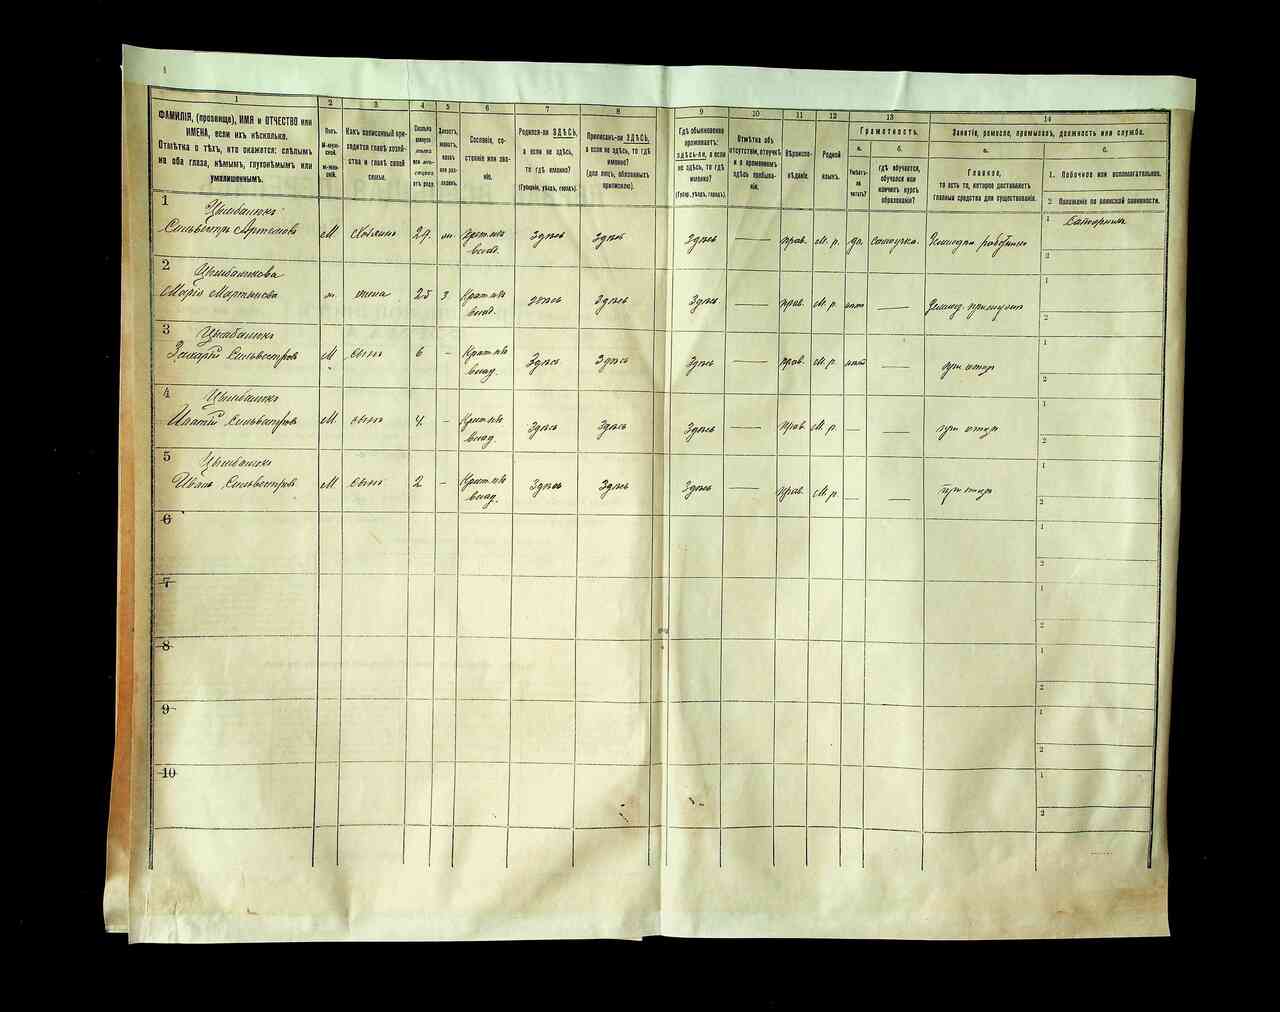 1
2
3
4
5
6
7
8
9
10
11
12
13
14
ФАМИЛІЯ, (прозвище), ИМЯ и ОТЧЕСТВО или
ИМЕНА, если ихъ нѣсколько.
Отмѣтка о тѣхъ, кто окажется: слѣпымъ
на оба глаза, нѣмымъ, глухонѣмымъ или
умалишеннымъ.
Полъ.
Какъ записанный при-
ходится главѣ хозяй-
ства и главѣ своей
семьи.
Сословіе, со-
стояніе или зва-
ніе.
Родился-ли ЗДѢСЬ,
а если не здѣсь,
то гдѣ именно?
(Губернія, уѣздъ, городъ).
Приписанъ-ли ЗДѢСЬ,
а если не здѣсь, то гдѣ
именно?
(для лицъ, обязанныхъ
припискою).
Гдѣ обыкновенно
проживаетъ:
здѣсь-ли, а если
не здѣсь, то гдѣ
именно?
(Губер., уѣздъ, городъ).
Отмѣтка объ
отсутствіи, отлучкѣ
и о временномъ
здѣсь пребыва-
ніи.
Вѣроиспо-
вѣданіе.
Родной
языкъ.
Грамотность.
а.
Умѣетъ-
ли
читать?
б.
гдѣ обучается,
обучался или
кончилъ курсъ
образованія?
Занятіе, ремесло, промыселъ, должность или служба.
а.
Главное,
то есть то, которое доставляетъ
главныя средства для существованія.
б.
1. Побочное или вспомогательное.
2 Положеніе по воинской повинности.
1
Цымбалюкъ
Сильвестръ Артемовъ М Хозяинъ 29. ж. Крест. изъ влад. Здѣсь Здѣсь Здѣсь — прав. М. р. да.
1
2
2
Цымбалюкова
Марія Мартынова ж. жена 25 з. Крест. изъ влад. Здѣсь Здѣсь Здѣсь — прав. М. р. нѣтъ —
1
2
3
Цымбалюкъ
Захарій Сильвестровъ М сынъ 6 - Крест. изъ влад. Здѣсь Здѣсь Здѣсь — прав. М. р. нѣтъ — при отцѣ
1
2
4
Цымбалюкъ
Игнатій Сильвестровъ М сынъ 4. - Крест. изъ влад. Здѣсь Здѣсь Здѣсь — прав. М. р. — — при отцѣ
1
2
5
Цымбалюкъ
Иванъ Сильвестровъ М сынъ 2 - Крест. изъ влад. Здѣсь Здѣсь Здѣсь — прав. М. р. — — при отцѣ
1
2
6
1
2
7
1
2
8
1
2
9
1
2
10
1
2